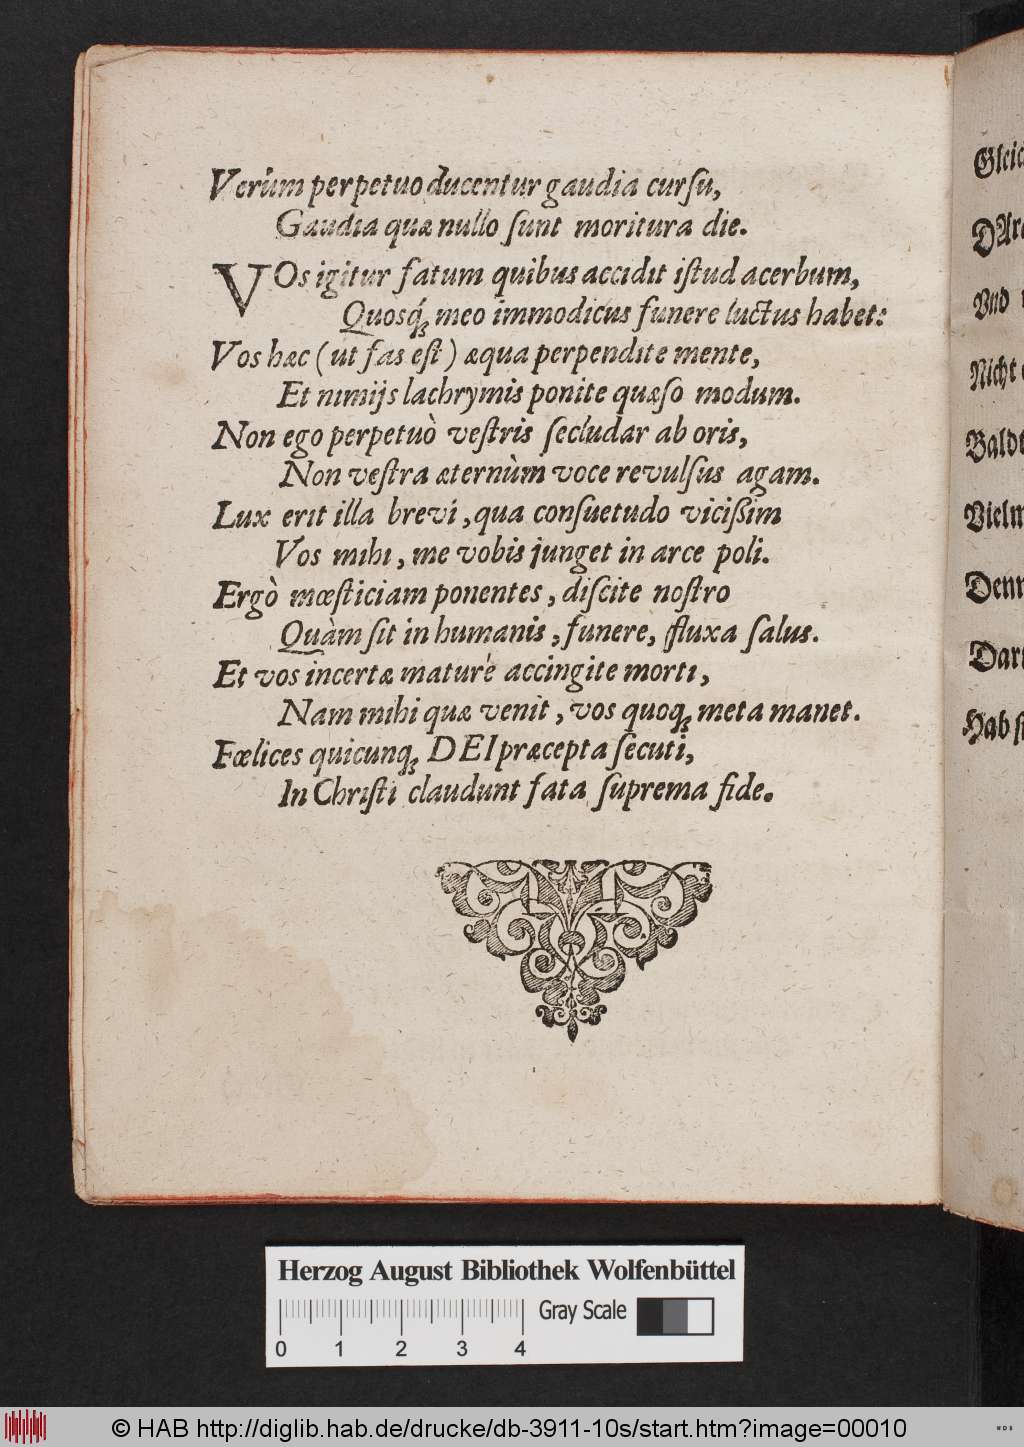 Verùm perpetuo ducentur gaudia cursu,
Gaudia quæ nullo sunt moritura die.
VOs igitur fatum quibus accidit istud acerbum,
Quosq́; meo immodicus funere luctus habet:
Vos hæc (ut fas est) æqua perpendite mente,
Et nimijs lachrymis ponite quæso modum.
Non ego perpetuò vestris secludar ab oris,
Non vestra æternùm voce revulsus agam.
Lux erit illa brevi, qua consuetudo vicißim
Vos mihi, me vobis junget in arce poli.
Ergò mœsticiam ponentes, discite nostro
Quàm sit in humanis, funere, fluxa salus.
Et vos incertæ maturè accingite morti,
Nam mihi quæ venit, vos quoq; meta manet.
Fœlices quicunq; DEI præcepta secuti,
In Christi claudunt fata suprema fide.
Gleic
DAr
Vnd
Nicht
Baldt
Vielm
Denn
Dar
Hab
Herzog August Bibliothek Wolfenbüttel
Gray Scale
0 1 2 3 4
© HAB http://diglib.hab.de/drucke/db-3911-10s/start.htm?image=00010